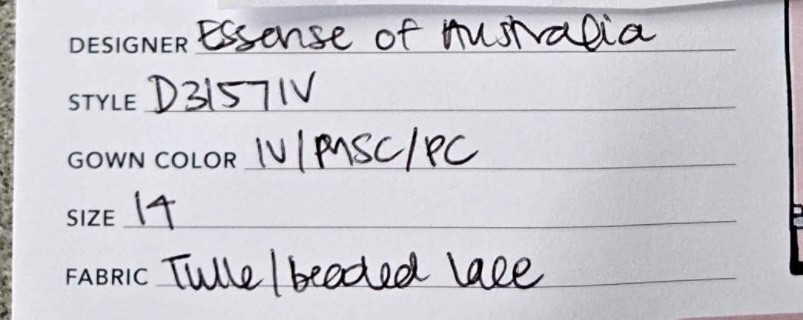 DESIGNER Essense of Australia
STYLE D3157IV
GOWN COLOR IV/MSC/PC
SIZE 14
FABRIC Tulle/beaded lace